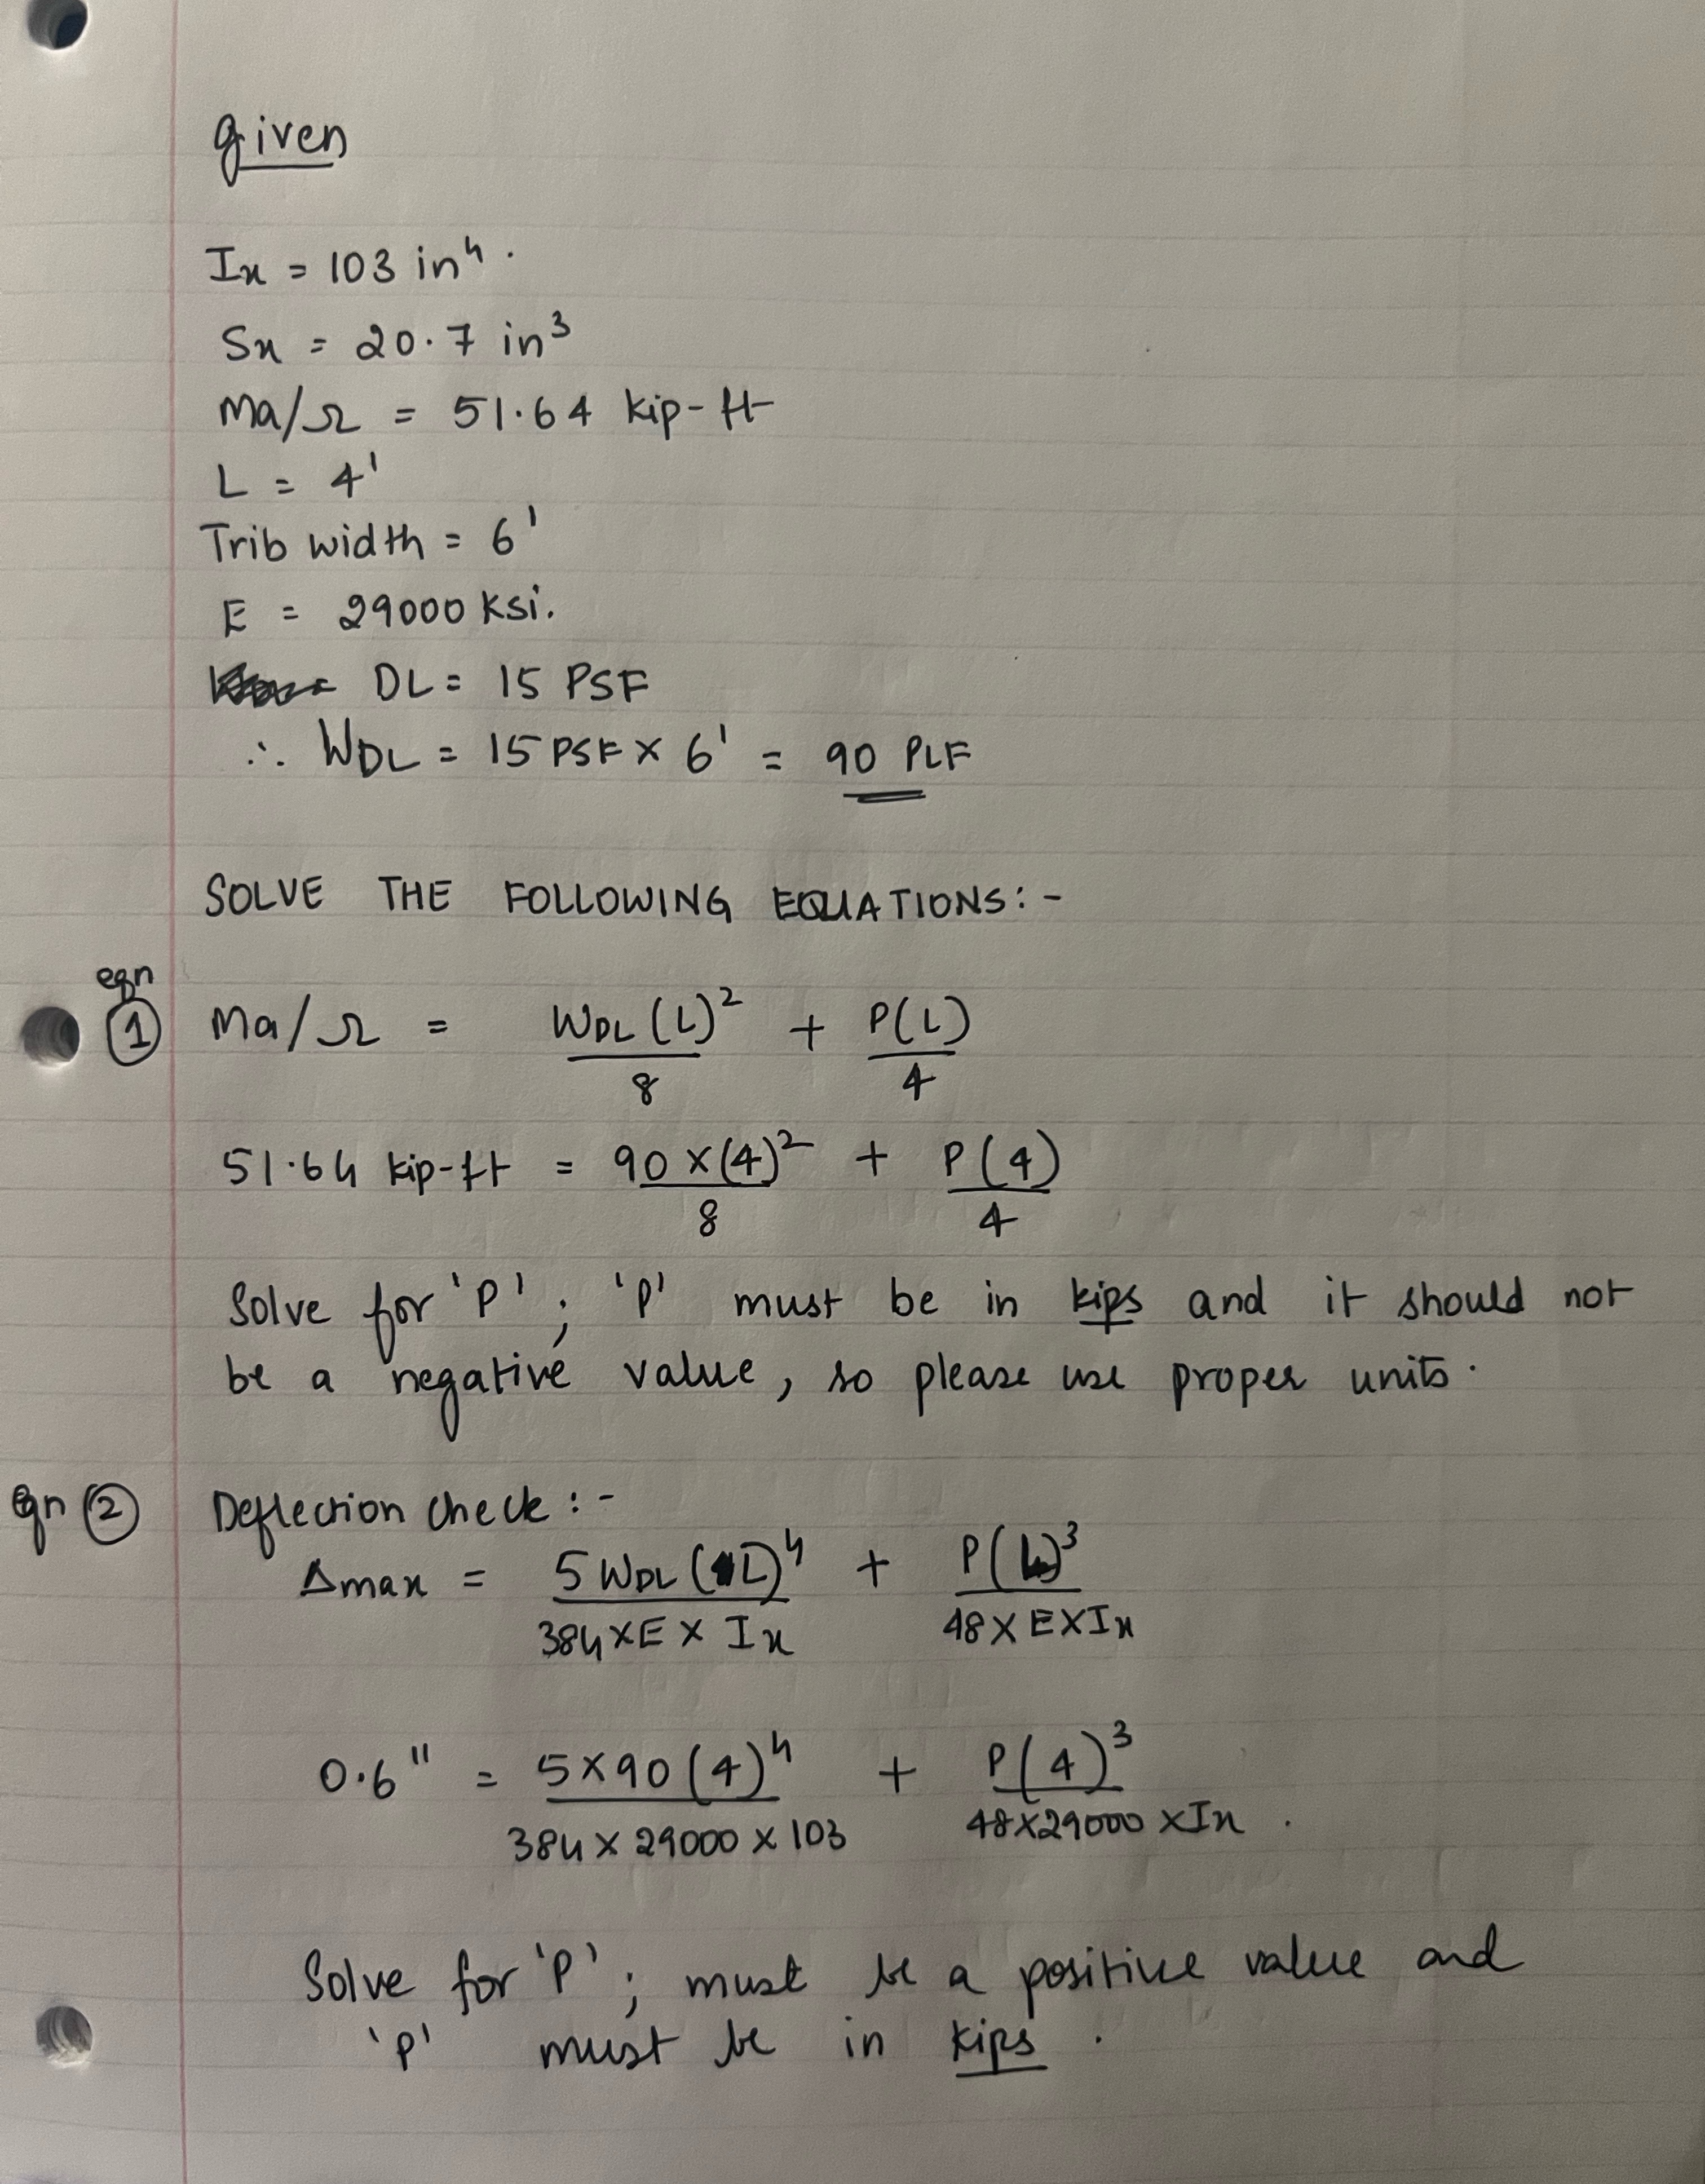 given
Ix = 103 in⁴.
Sx = 20.7 in³
Ma/Ω = 51.64 kip-ft
L = 4'
Trib width = 6'
E = 29000 Ksi.
DL = 15 PSF
∴ WDL = 15 PSF X 6' = 90 PLF
SOLVE THE FOLLOWING EQUATIONS:-
eqn
① Ma/Ω = WDL (L)²/8 + P(L)/4
51.64 kip-ft = 90 X (4)²/8 + P(4)/4
Solve for 'P'; 'P' must be in kips and it should not
be a negative value, so please use proper units.
Eqn ② Deflection check :-
Δmax = 5 WDL (L)⁴/384 X E X Ix + P(L)³/48 X E X Ix
0.6" = 5 X 90 (4)⁴/384 X 29000 X 103 + P(4)³/48 X 29000 X Ix .
Solve for 'P'; must be a positive value and
'P' must be in kips .